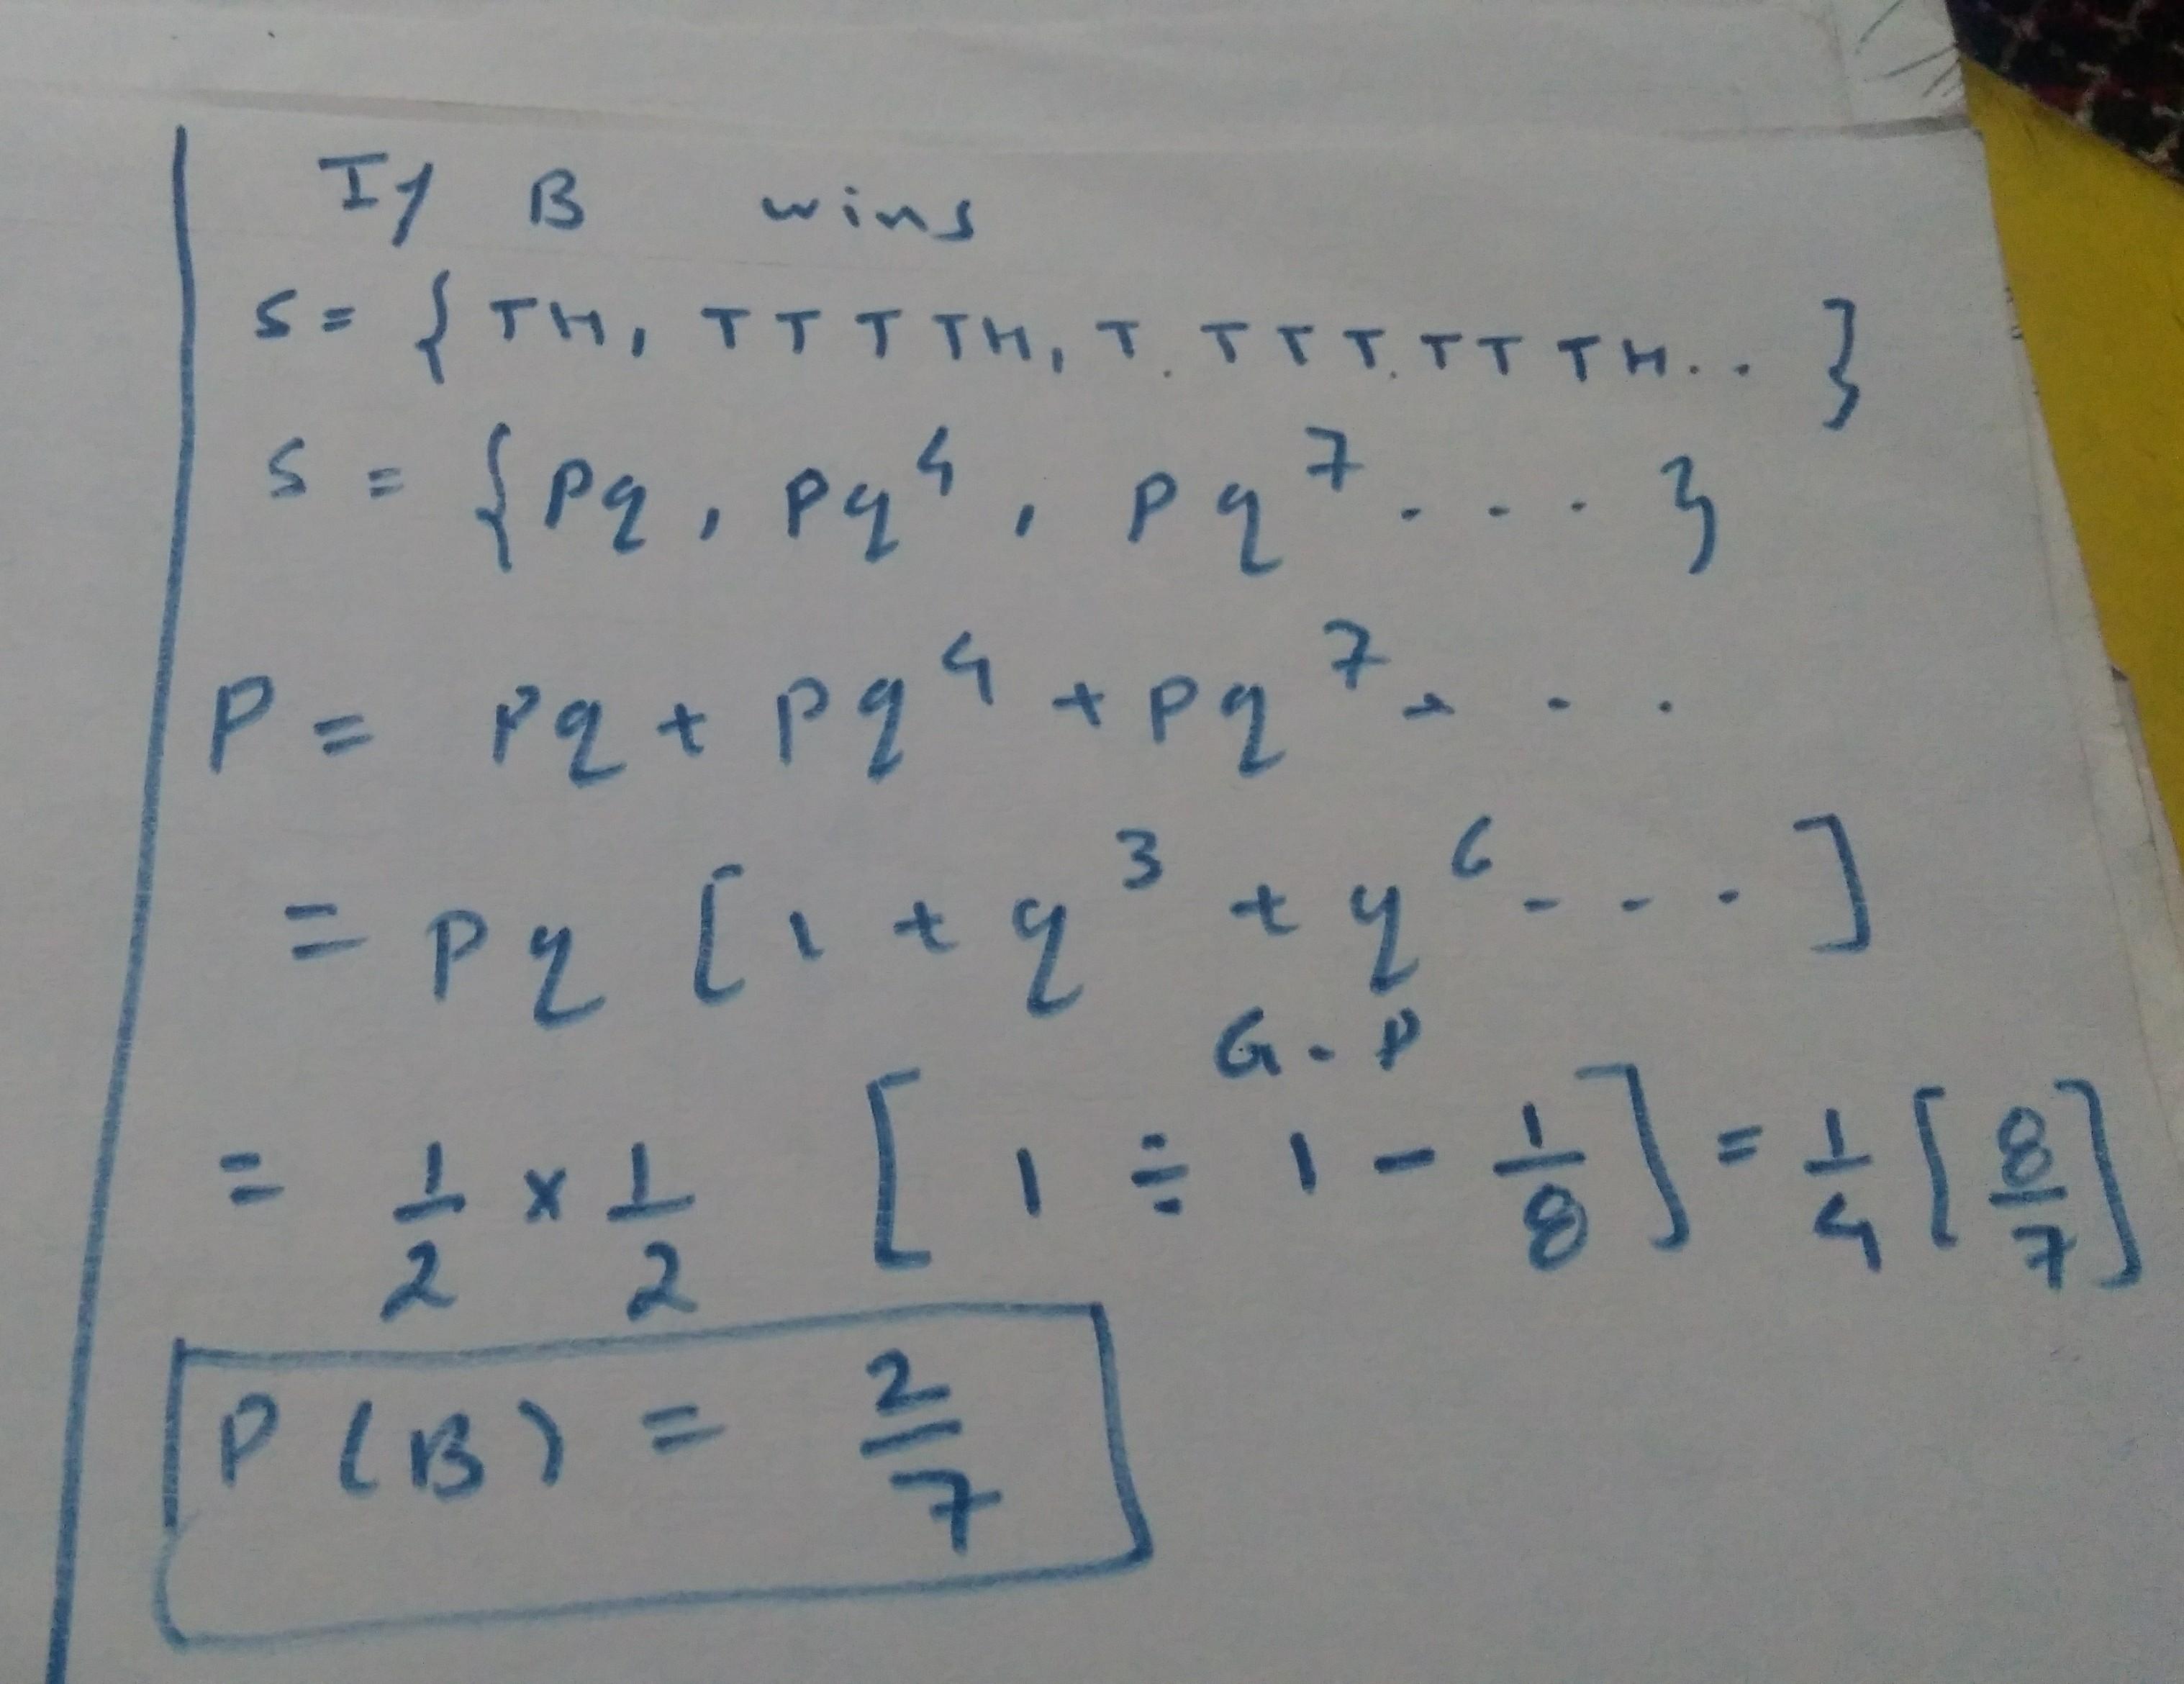 If B wins
S = { TH, TTTTH, T.TTT.TTTH.. }
S = { pq, pq⁴, pq⁷ . . . }
P = pq + pq⁴ + pq⁷ + . .
= pq [ 1 + q³ + q⁶ - - - ]
G.P
= 1/2 × 1/2 [ 1 ÷ 1 - 1/8 ] = 1/4 [ 8/7 ]
P(B) = 2/7